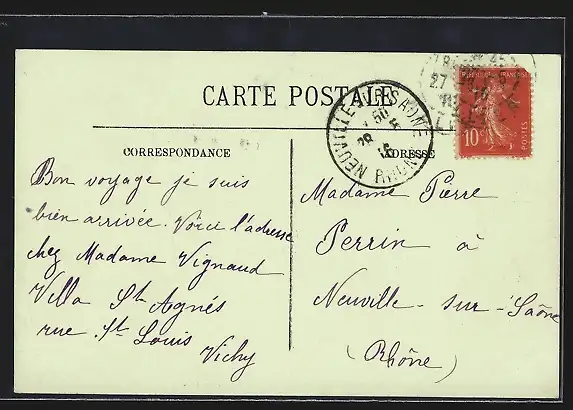 CARTE POSTALE
CORRESPONDANCE
Bon voyage je suis
bien arrivée. Voici l'adresse
chez Madame Vignaud
Villa St Agnés
rue. St Louis
Vichy
NEUVILLE-SUR-SAÔNE
RHÔNE
ADRESSE
REPUBLIQUE FRANÇAISE
10c
POSTES
Madame Pierre
Perrin à
Neuville-sur-Saône
(Rhône)